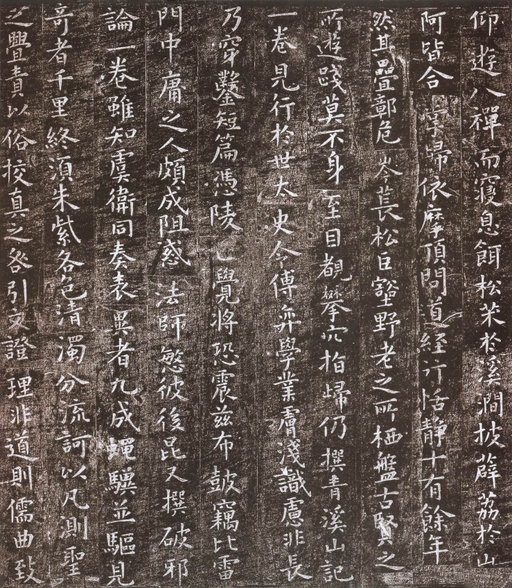 仰遊八禪而寢息餌松朮於溪澗披薜荔於山
阿皆合掌歸依摩頂問道經行恬靜十有餘年
然其疊鄣危岑萇松巨壑野老之所栖盤古賢之
所遊踐莫不身至目覩攀穴指歸仍撰青溪山記
一卷見行於世太史令傅弈學業膚淺識慮非長
乃穿鑿短篇憑陵覺將恐震茲布皷竊比雷
門中庸之人頗成阻惑法師愍彼後昆又撰破邪
論一卷雖知虞衛同奏表異者九成蠅驥並驅見
奇者千里終須朱紫各色清濁分流訶以凡測聖
之舋責以俗挍真之咎引文證理非道則儒曲致